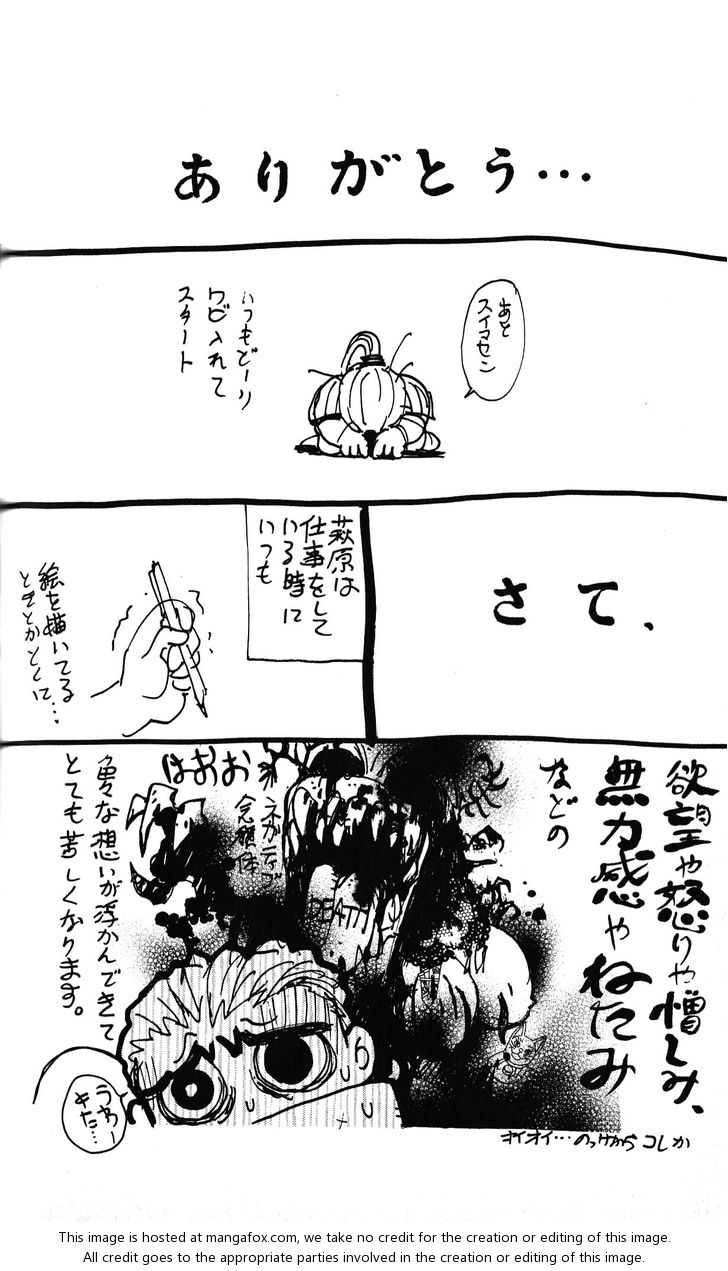 ありがとう…
あと
スイマセン
いつもどーり
ワビ入れて
スタート
さて、
萩原は
仕事をして
いる時に
いつも
絵を描いてる
ときとかとくに…
欲望や怒りや憎しみ、
無力感やねたみ
などの
オイオイ…のっけからコレか
DEATH
ネガティブ
念願体
はおお
色々な想いが浮かんできて
とても苦しくなります。
うわー
きた…
This image is hosted at mangafox.com, we take no credit for the creation or editing of this image.
All credit goes to the appropriate parties involved in the creation or editing of this image.